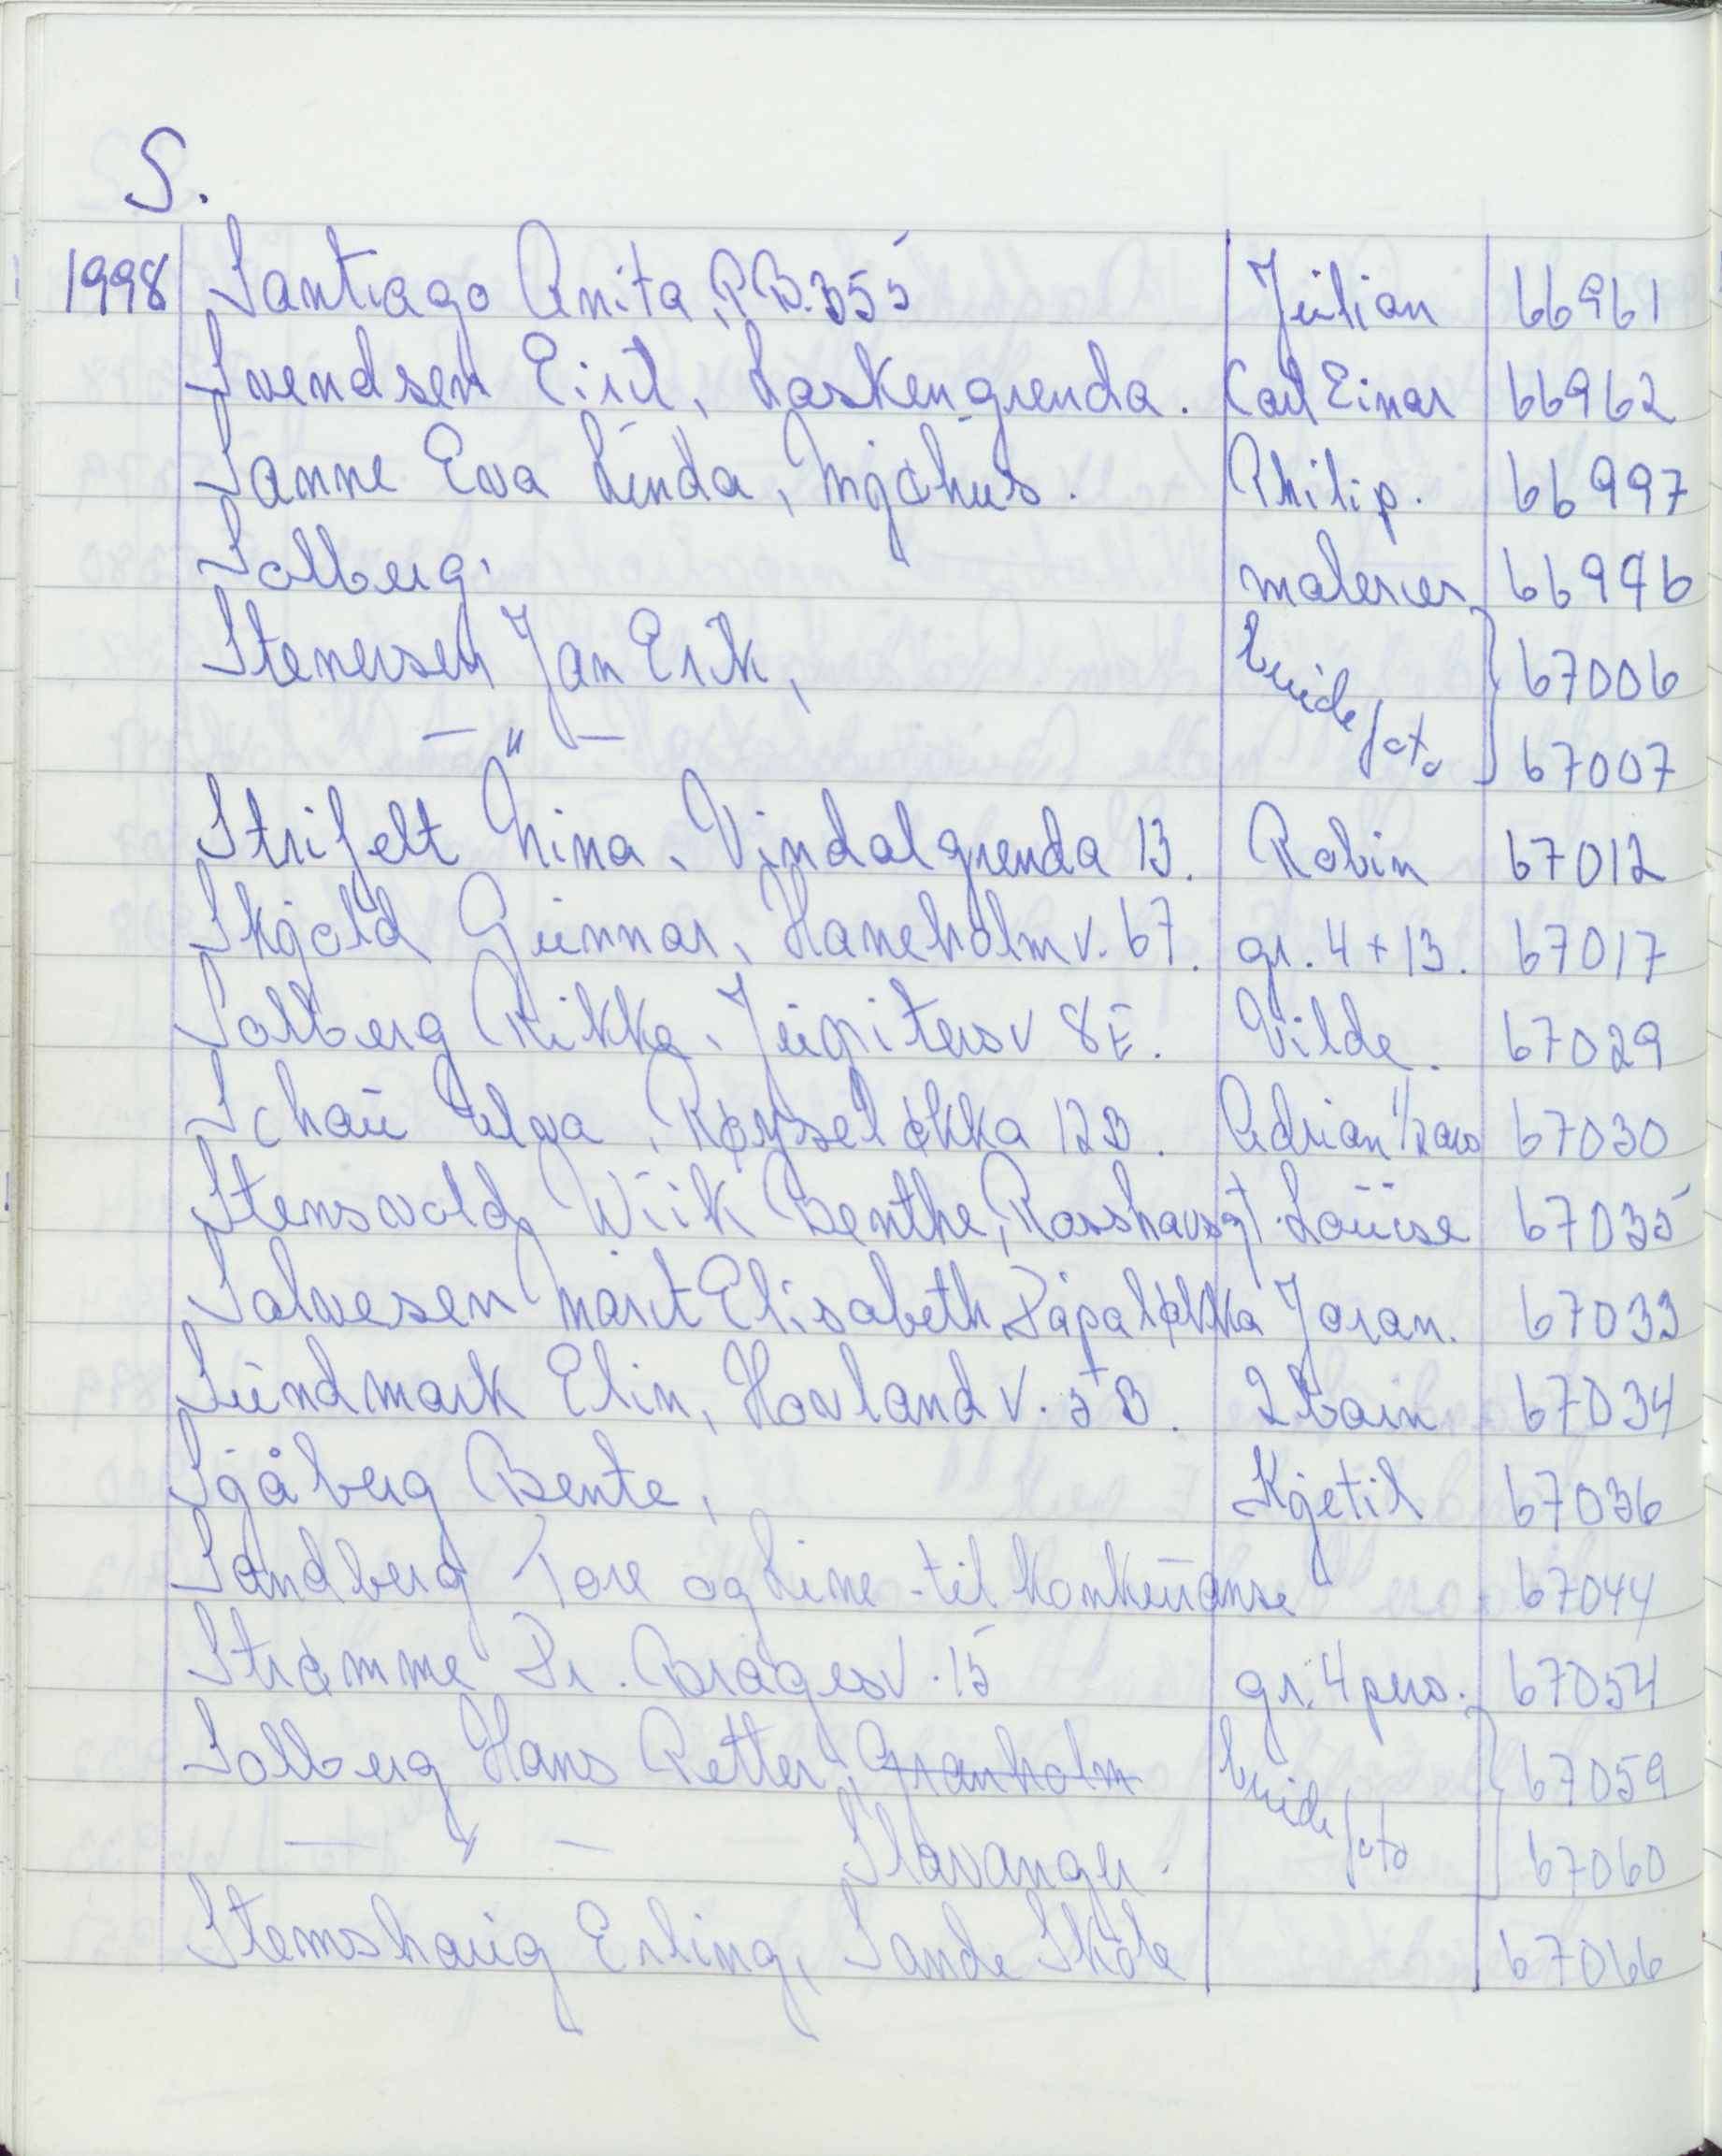 S.
1998 Santiago Anita, P.B. 355 Julian 66961
Svendsen Eiril, Laskengrenda. Carl Einar 66962
Sanne Eva Linda, Nyhus. Philip. 66997
Solberg. malerier 66996
Stenersen Jan Erik, brude 67006
— " — foto 67007
Strifelt Nina, Vindalgrenda 13. Robin 67012
Skjold Gunnar, Haneholmv. 67. gr. 4 + 13. 67017
Solberg Rikke, Jupitersv 8E. Vilde. 67029
Schau Elva, Røyseløkka 12B. Adrian 1/2 års 67030
Stensvold Wiik Benthe, Rosshavsgt. Louise 67035
Salvesen Marit Elisabeth, Såpeløkka Joran. 67033
Sundmark Elin, Hovland v. 5B. 2 barn 67034
Sjåberg Bente, Kjetil 67036
Sandberg Tore og Line - til konkuranse 67044
Strømme Pr. Bragesv. 15 gr. 4 pers. 67054
Solberg Hans Petter, Granholm brude 67059
— " — Stavanger. foto 67060
Stemshaug Erling, Sande Skole 67066